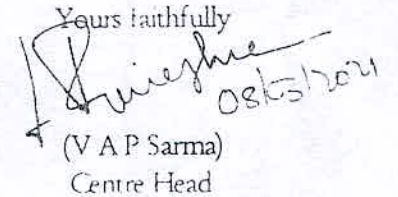 Yours faithfully
08/5/2021
(V A P Sarma)
Centre Head